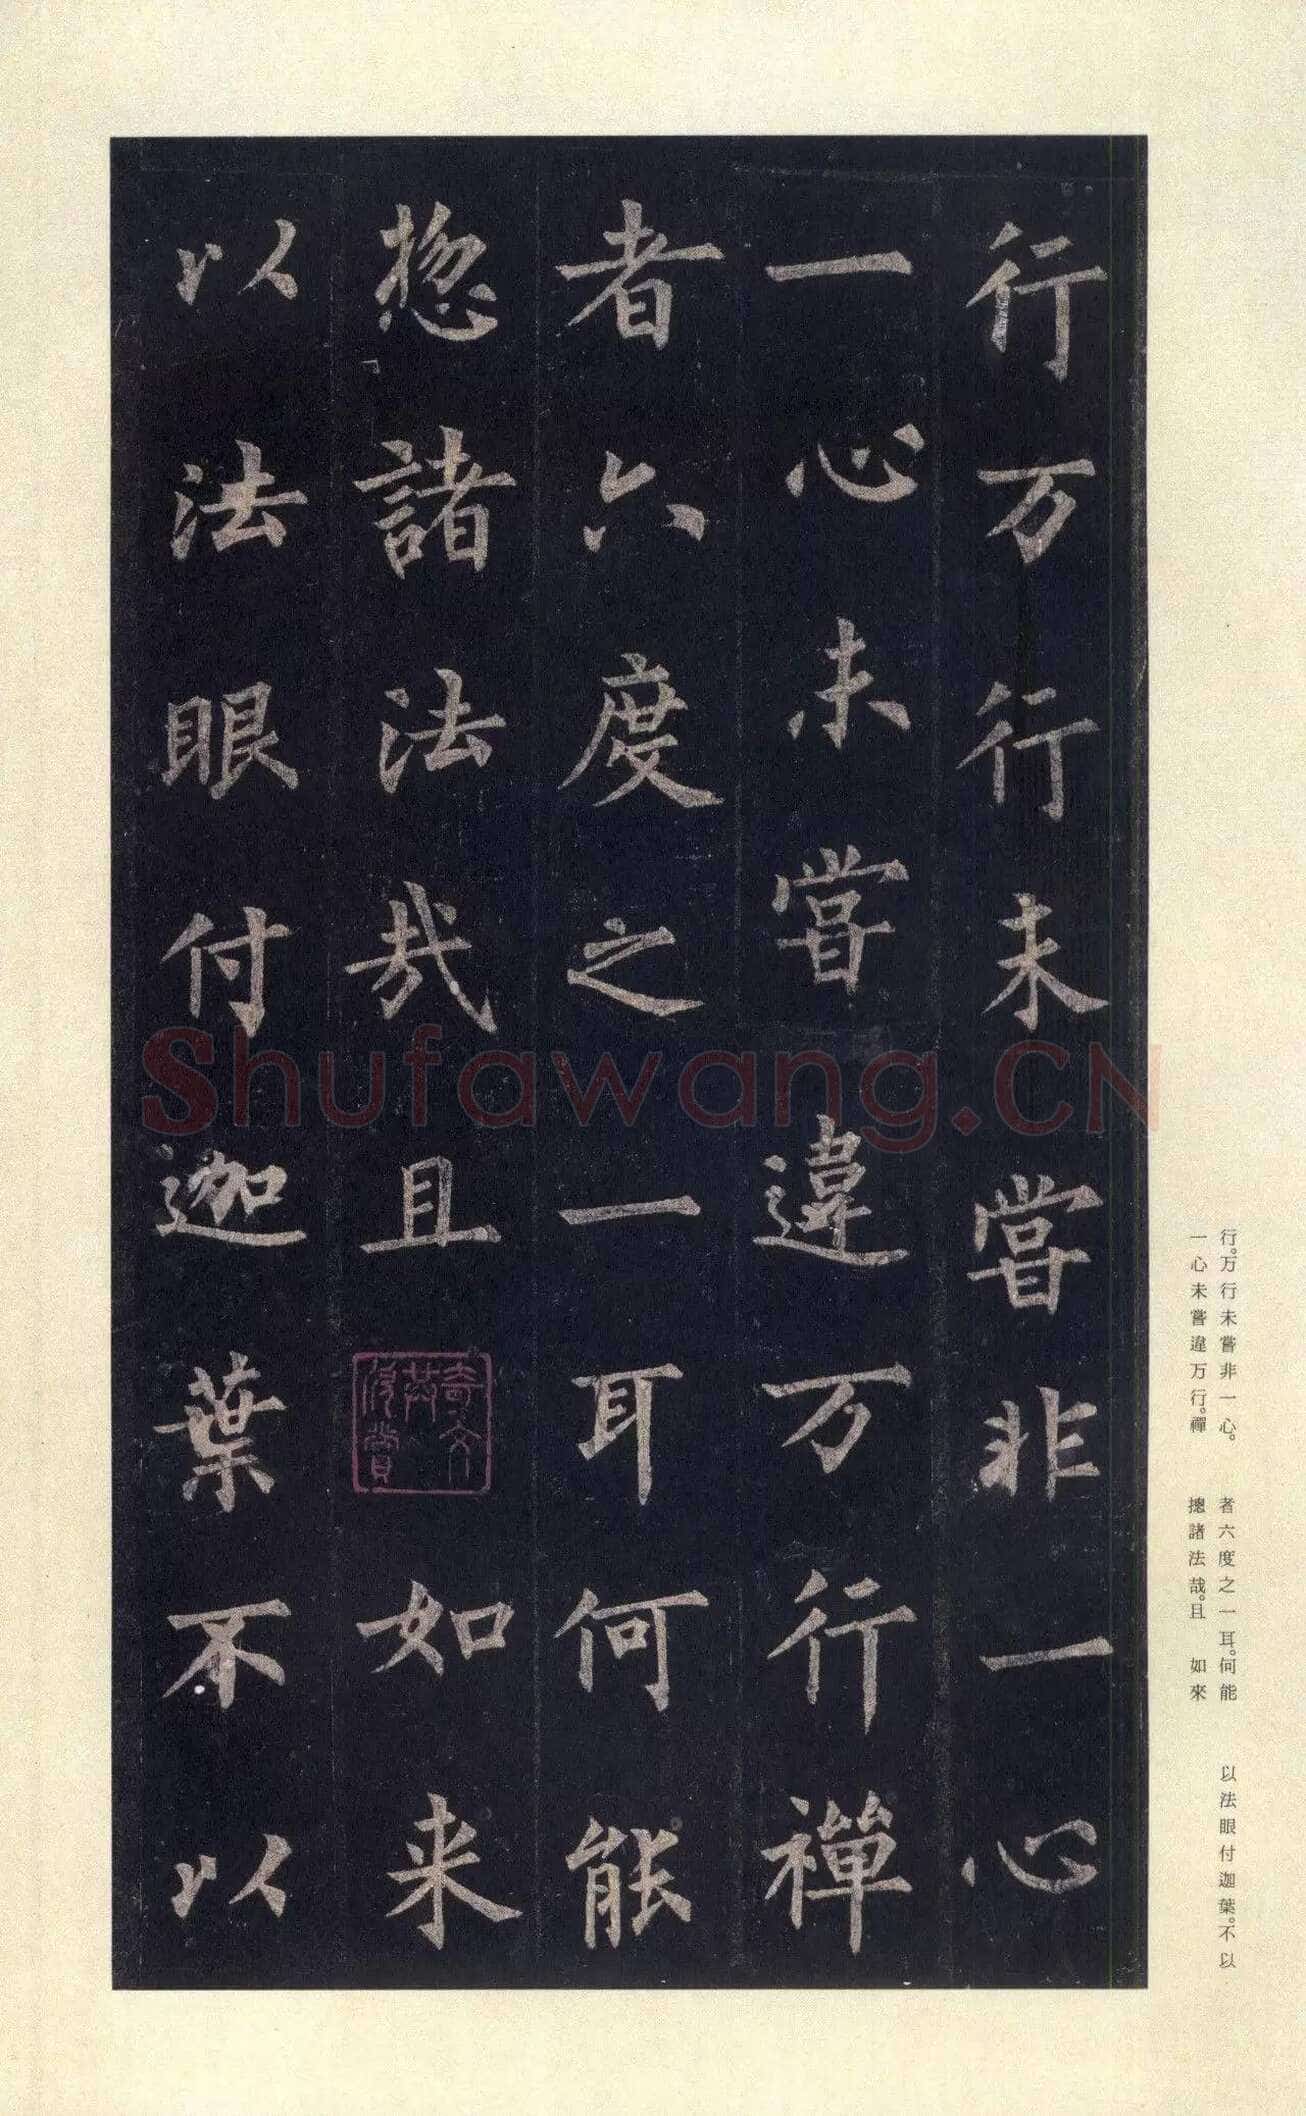 行万行未嘗非一心
一心未嘗違万行禪
者六度之一耳何能
揔諸法哉且如来
以法眼付迦葉不以
奇文共欣賞
Shufawang.CN
行。万行未嘗非一心。
一心未嘗違万行。禪
者六度之一耳。何能
摠諸法哉。且 如來
以法眼付迦葉。不以